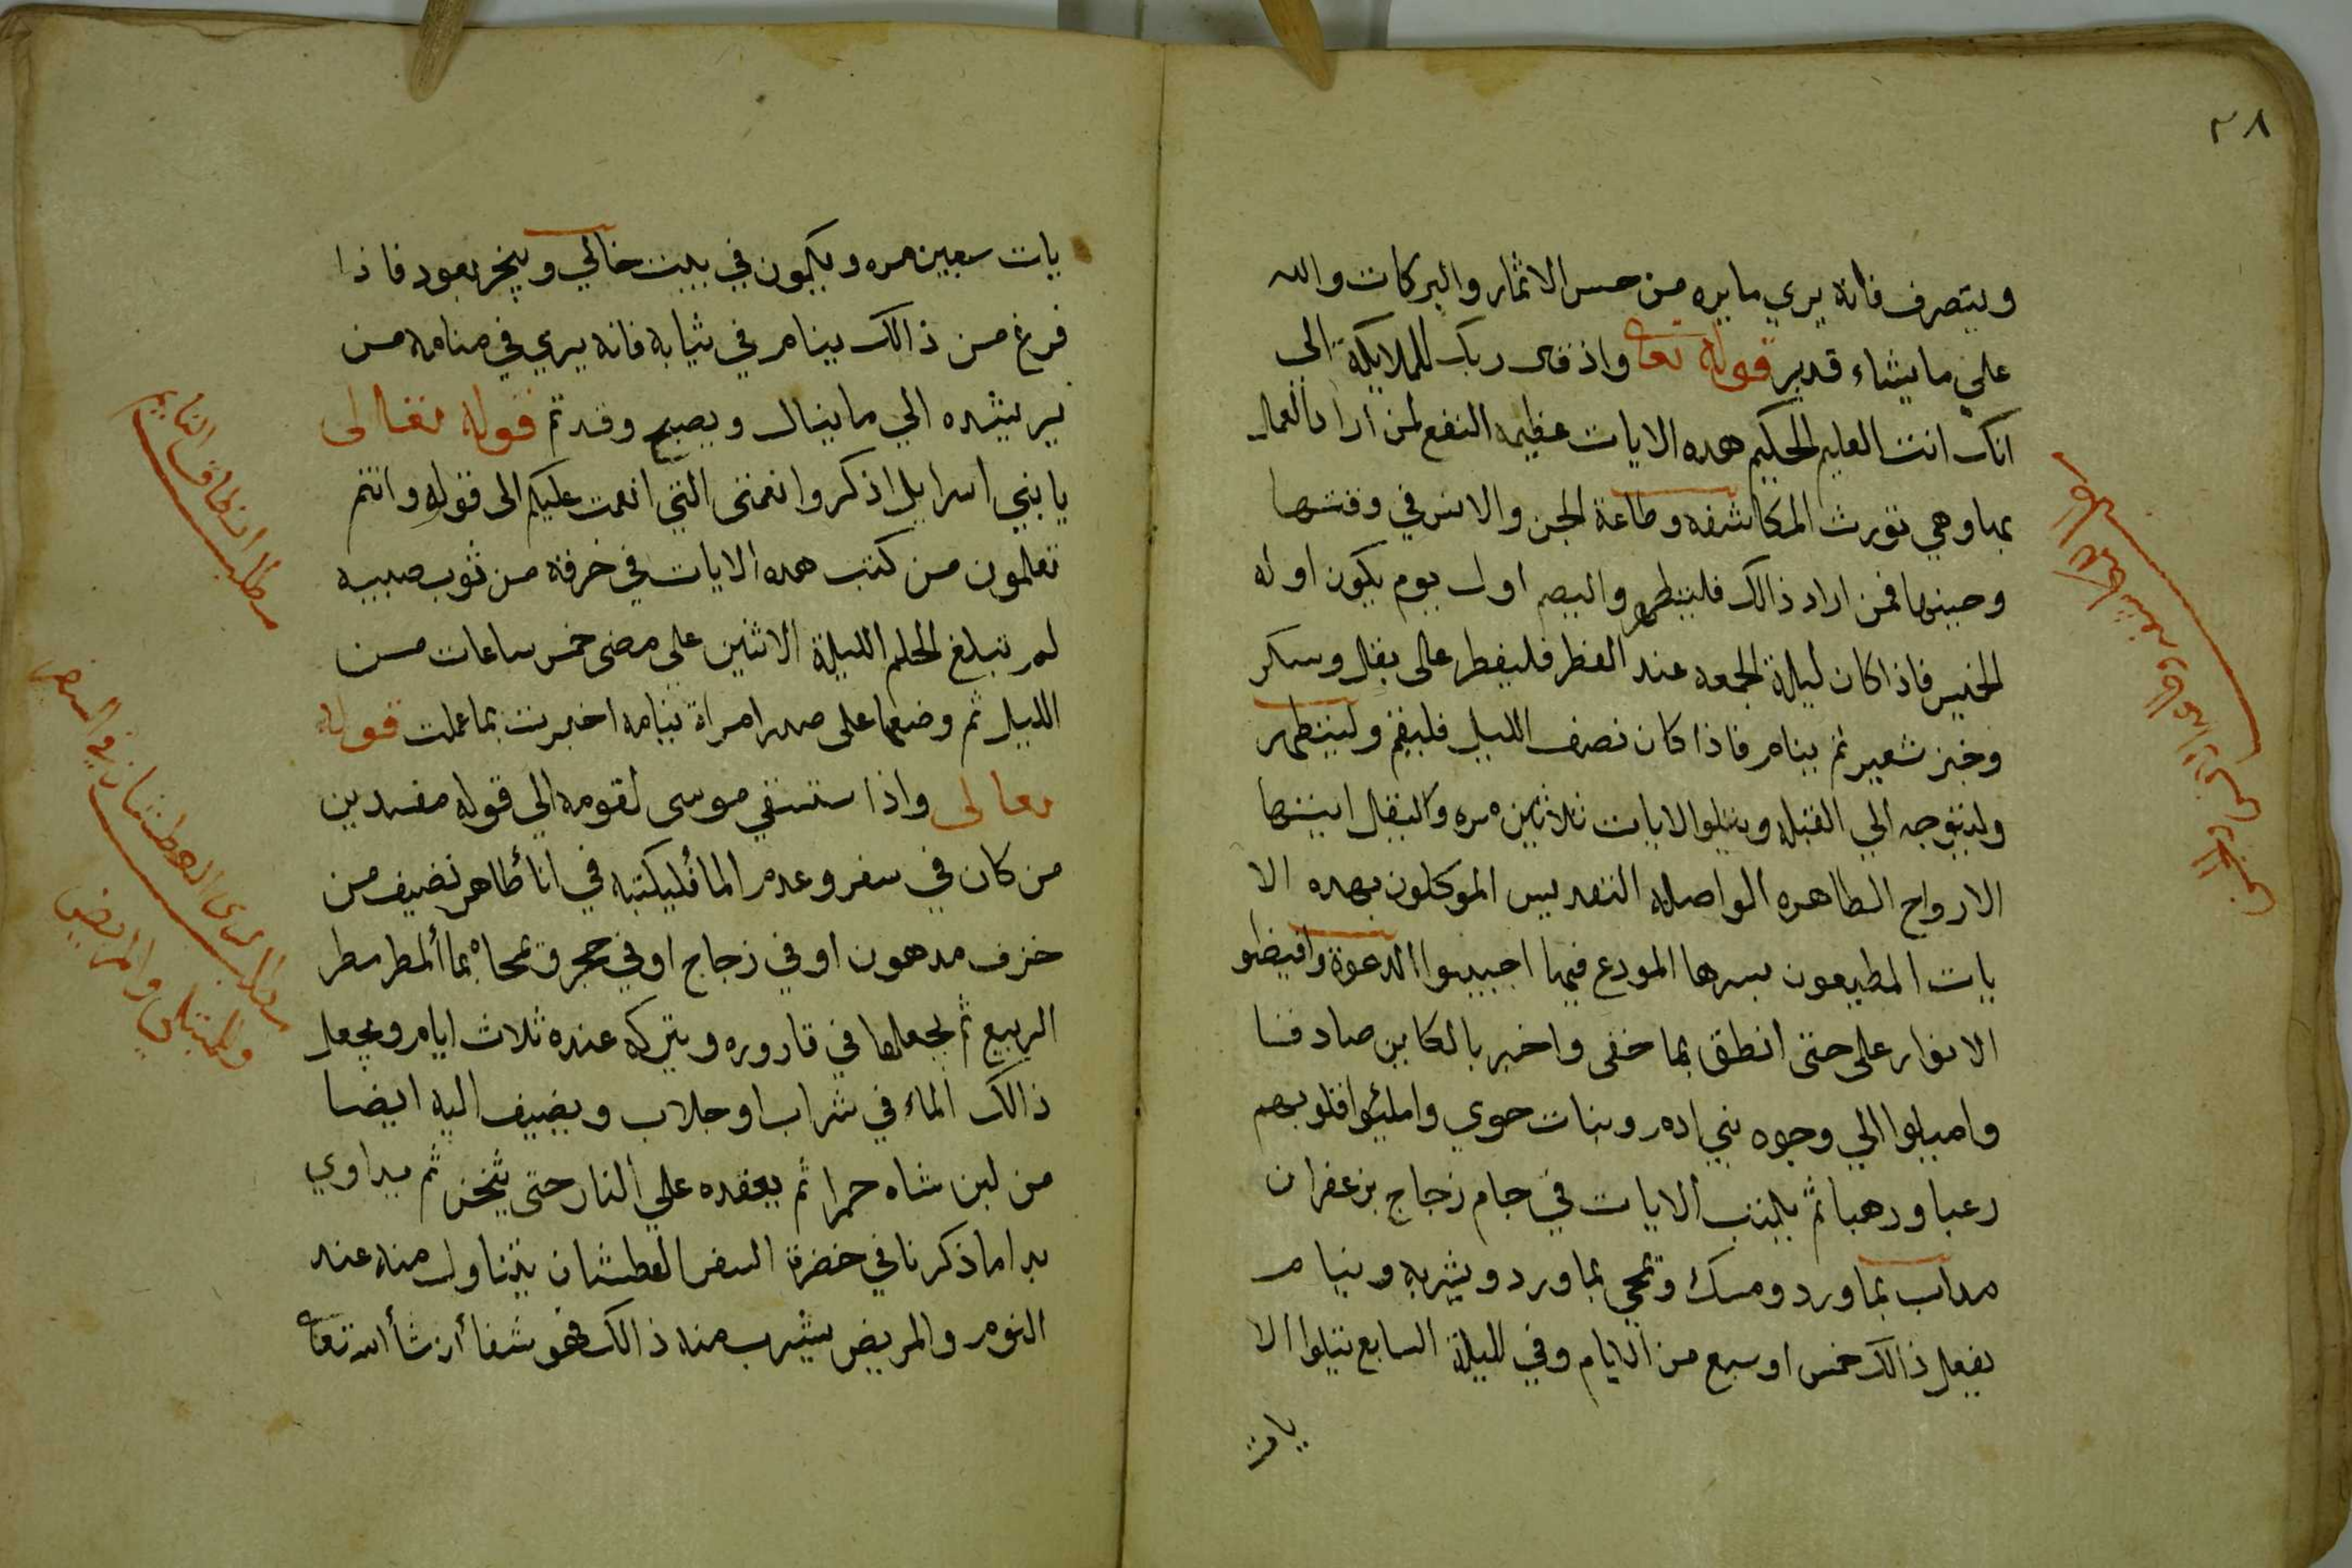 ٣٨
ويتصرف فانه يري مايره من حسن الاثمار والبركات والله
علي مايشاء قدير قوله تعا واذ قال ربك للملايكة الي
انك انت العليم الحكيم هده الايات عظيمه النفع لمن اراد العمل
بها وهي تورث المكاشفه وطاعة الجن والانس في وقتها
وحينها فمن اراد ذالك فليتطهر واليصم اول يوم يكون اوله
الخميس فاذا كان ليلة الجمعه عند الفطر فليفطر عالى بقل وسكر
وخبز شعير ثم ينام فاذا كان نصف الليل فليقم وليتطهر
وليتوجه الي القبله ويتلوا الايات ثلاثين مره واليقال ايتها
الارواح الطاهره الواصله التقديس الموكلون بهده الا
يات المطيعون بسرها المودع فيها اجيبوا الدعوة وافيظو
الانوار على حتى انطق بما خفى واخبر بالكاين صادقا
واميلوا الي وجوه بني ادم وبنات حوي واملئوا قلوبهم
رعبا ورهبا ثم يكتب الايات في جام زجاج بزعفران
مداب بماورد ومسك وتمحي بماورد ويشربه وينام
يفعل ذالك خمس او سبع من الايام وفي لليلة السابع يتلوا الا
يات
يات سبعين مره ويكون في بيت خالي ويبخر بعود فاذا
فرغ من ذالك ينام في ثيابه فانه يري في منامه من
يريشده الي ماينال ويصبح وقد تم قوله تعالى
يابني اسرايل اذكروا نعمتى التي انعمت عليكم الى قوله وانتم
تعلمون من كتب هده الايات في خرقة من ثوب صبيه
لم تبلغ الحلم الليلة الاثنين علي مضى خمس ساعات من
الليل ثم وضعها على صدر امراة ينامه اخبرت بما عملت قوله
تعالى واذا ستسقي موسى لقومه الي قوله مفسدين
من كان في سفر وعدم الماْ فليكتبه في اناْ طاهر نضيف من
خزف مدهون او في زجاج او في حجر وتمحاه بماْ المطر مطر
الربيع ثم يجعلها في قاروره ويتركه عنده ثلاث ايام ويجعل
ذالك الماء في شراب او جلاب ويضيف اليه ايضا
من لبن شاه حمرا ثم يعقده علي النار حتى يثخن ثم يداوي
بدا ماذكرنا في خضرة السفر العطشان يتناول منه عند
النوم والمريض يشرب منه ذالك فهو شفاْ ان شاْ الله تعا
مطلب انطاق النايم
مطلب لري العطشان في السفر
والمبتلى والمريض